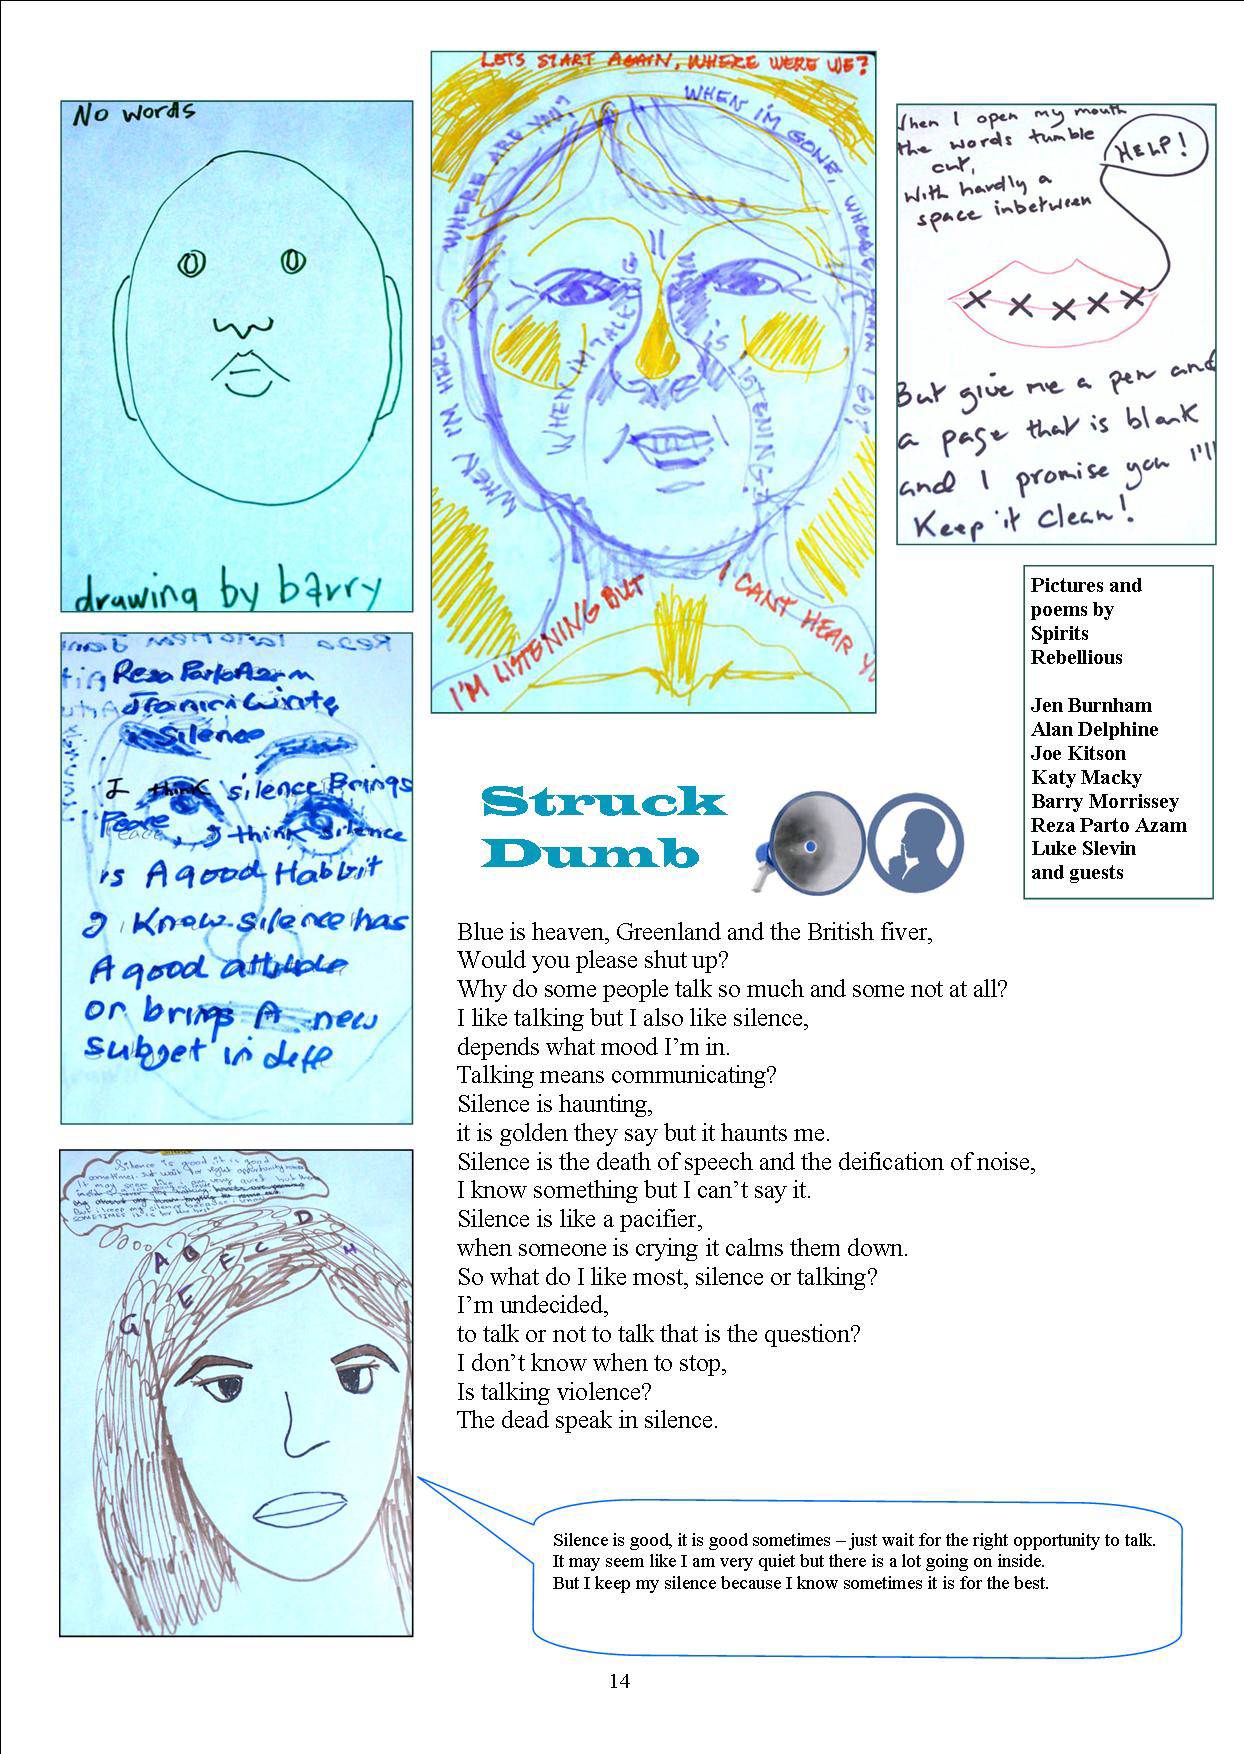 No words
drawing by barry
LETS START AGAIN, WHERE WERE WE?
WHERE ARE YOU?
WHEN I'M GONE, WHERE
I GO?
WHEN I'M HERE
WHEN I'M TALKING
IS LISTENING?
I'M LISTENING BUT
I CANT HEAR
When I open my mouth
the words tumble
out,
With hardly a
space inbetween
HELP!
But give me a pen and
a page that is blank
and I promise you I'll
Keep it clean!
Pictures and
poems by
Spirits
Rebellious
Jen Burnham
Alan Delphine
Joe Kitson
Katy Macky
Barry Morrissey
Reza Parto Azam
Luke Slevin
and guests
Reza Parto Azam
Silence
I think silence Brings
Peace, I think silence
is A good Habbit
I Know silence has
A good
or brings A new
subget in
Struck
Dumb
Blue is heaven, Greenland and the British fiver,
Would you please shut up?
Why do some people talk so much and some not at all?
I like talking but I also like silence,
depends what mood I’m in.
Talking means communicating?
Silence is haunting,
it is golden they say but it haunts me.
Silence is the death of speech and the deification of noise,
I know something but I can’t say it.
Silence is like a pacifier,
when someone is crying it calms them down.
So what do I like most, silence or talking?
I’m undecided,
to talk or not to talk that is the question?
I don’t know when to stop,
Is talking violence?
The dead speak in silence.
Silence is good, it is good
sometimes. wait for right opportunity
It may seem like I am very quiet but
But I keep my silence because I know
SOMETIMES it is for the best
A B F C D H
E
G
Silence is good, it is good sometimes – just wait for the right opportunity to talk.
It may seem like I am very quiet but there is a lot going on inside.
But I keep my silence because I know sometimes it is for the best.
14